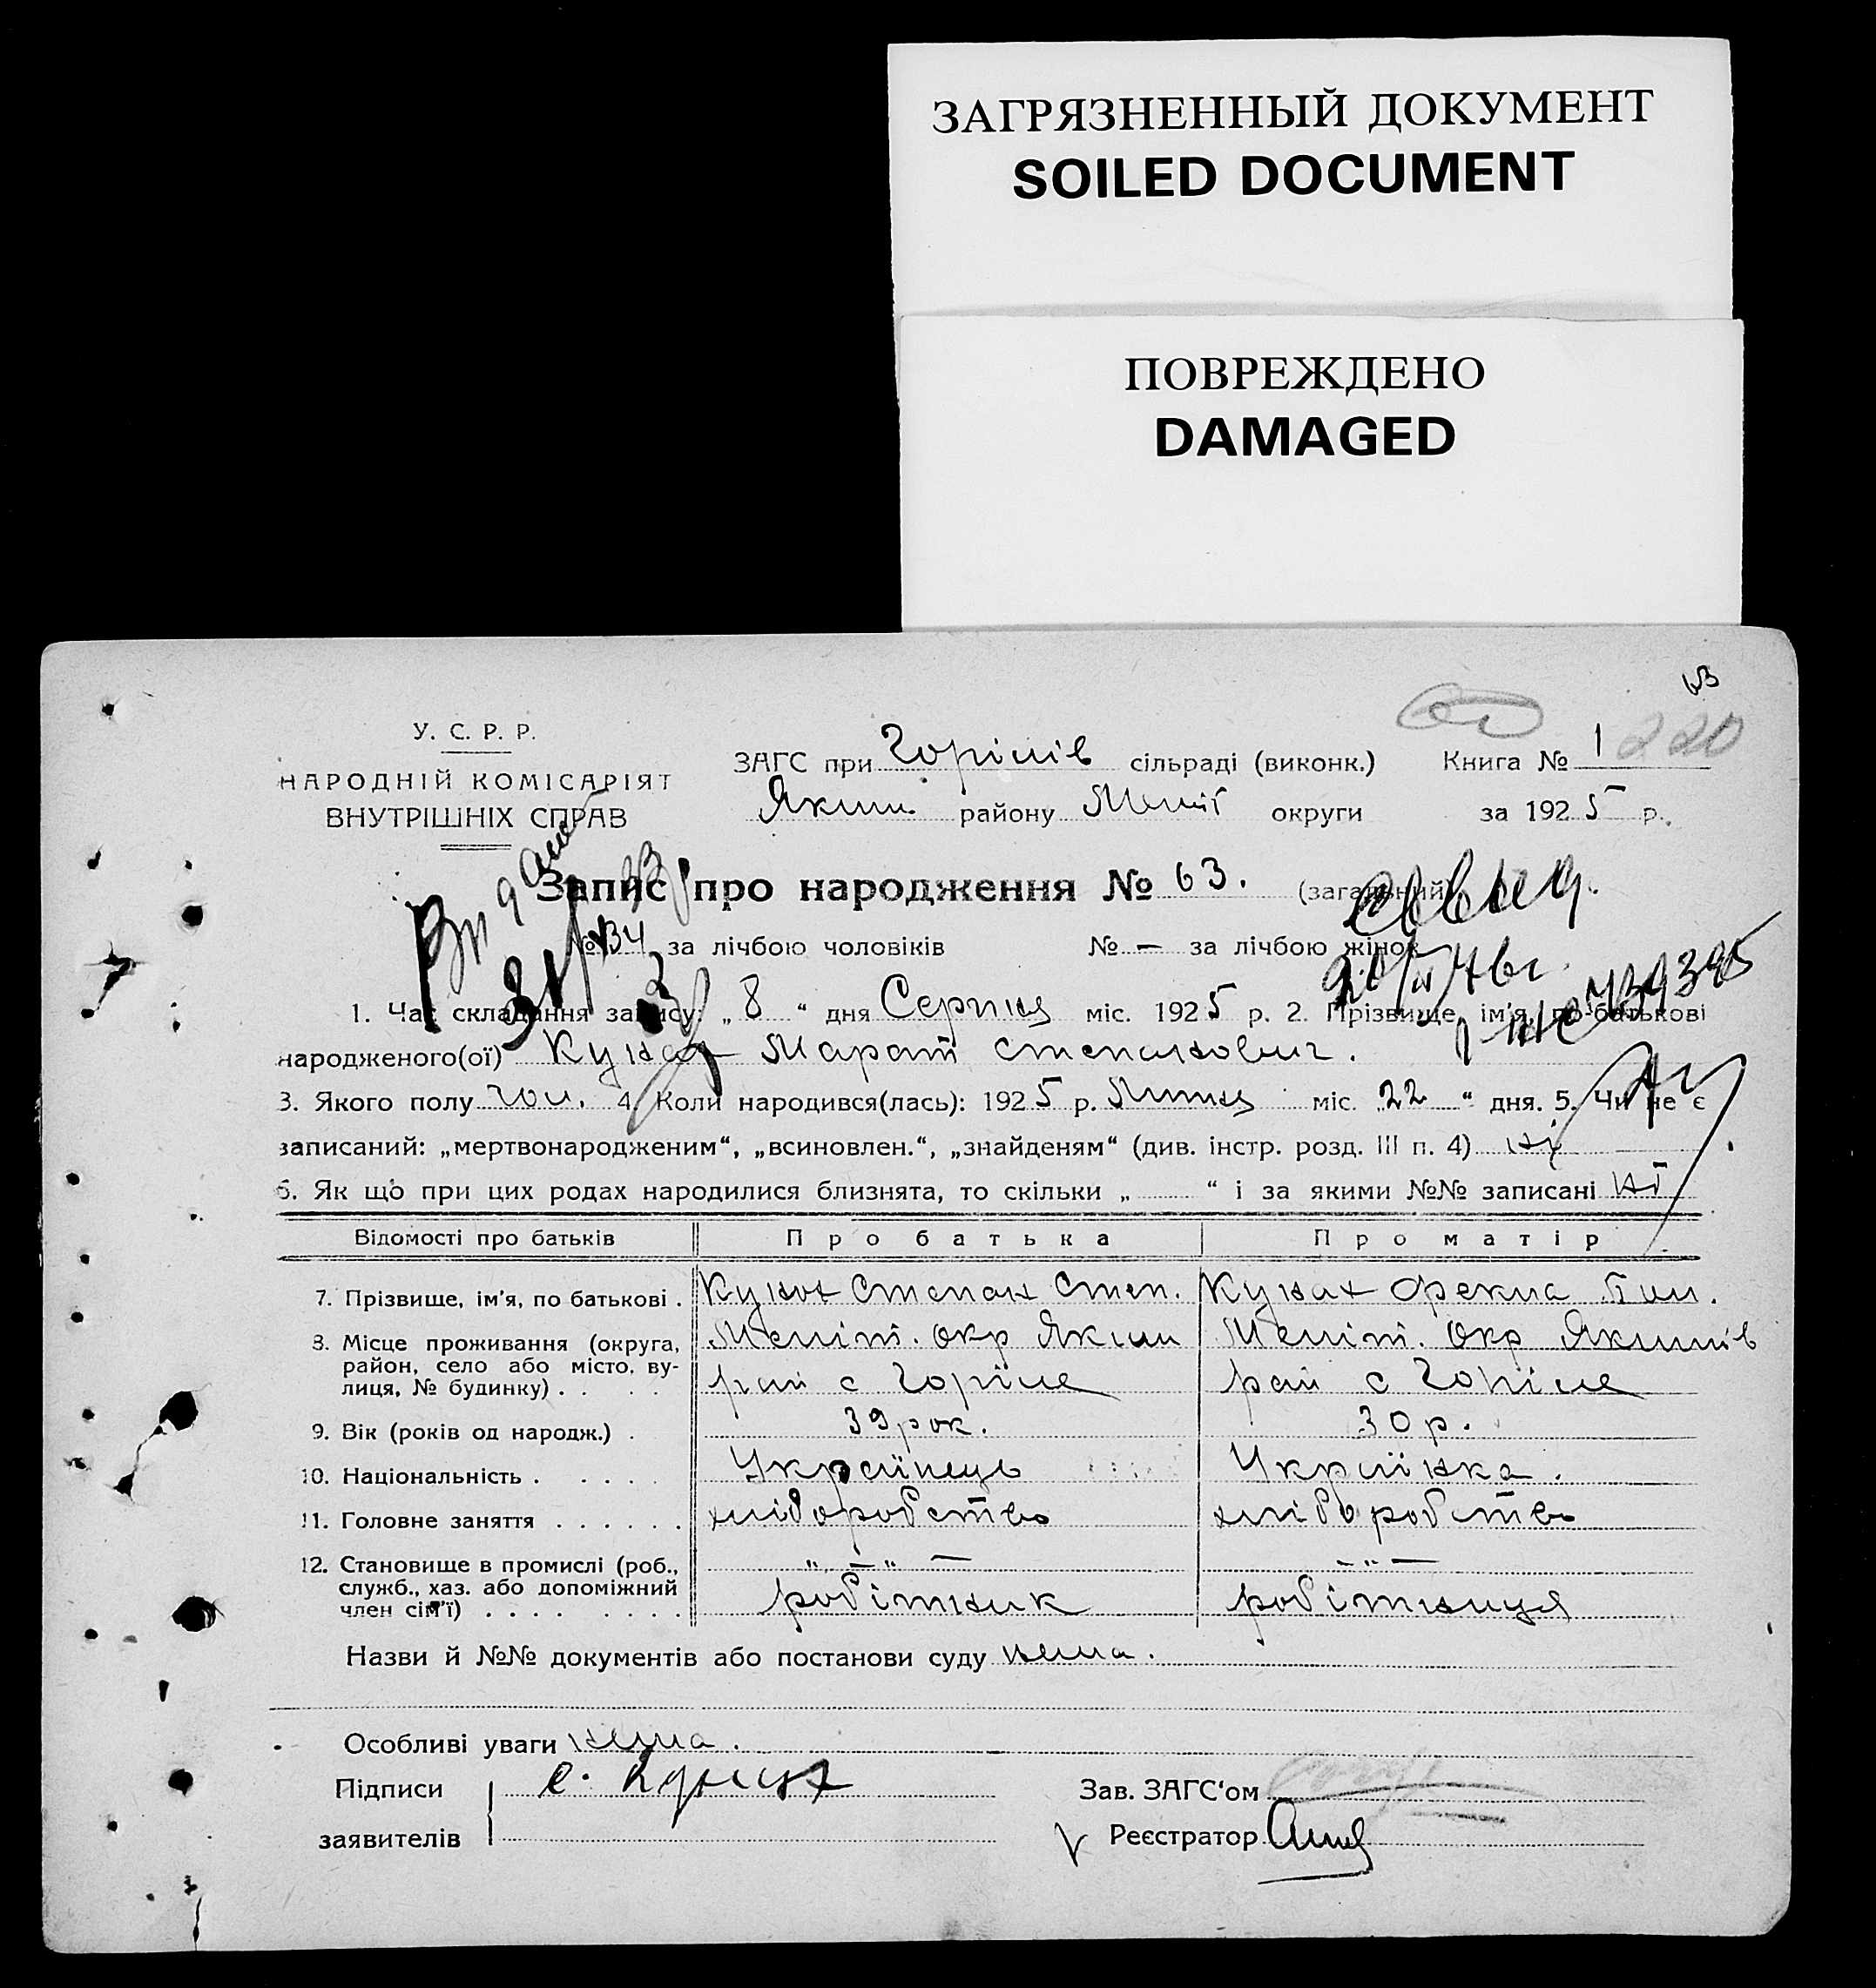 ЗАГРЯЗНЕННЫЙ ДОКУМЕНТ
SOILED DOCUMENT
ПОВРЕЖДЕНО
DAMAGED
63
220
У. С. Р. Р.
НАРОДНІЙ КОМІСАРІЯТ
ВНУТРІШНІХ СПРАВ
ЗАГС при Горілів сільраді (виконк.) Книга № 1
Яким. району Меліт округи за 1925 р.
Запис про народження № 63. (загальний)
№ 34 за лічбою чоловіків № — за лічбою жінок
1. Час складання запису: „ 8 “ дня Серпня міс. 1925 р. 2. Прізвище, ім'я, по-батькові
народженого(ої) Кунах Марат Степанович.
3. Якого полу чол. 4. Коли народився(лась): 1925 р. Липня міс. „22 “ дня. 5. Чи не є
записаний: „мертвонародженим“, „всиновлен.“, „знайденям“ (див. інстр. розд. III п. 4) ні
6. Як що при цих родах народилися близнята, то скільки „ “ і за якими №№ записані ні
Відомості про батьків Про батька Про матір
7. Прізвище, ім'я, по батькові . Кунах Степан Степ. Кунах Фекла
8. Місце проживання (округа, Меліт. окр Яким Меліт. Окр Якимів
район, село або місто, ву-
лиця, № будинку) . . . . рай с Горіле рай с Горіле
9. Вік (років од народж.) . 39 рок. 30 р.
10. Національність . . . . . Українець Українка.
11. Головне заняття . . . . . . хліборобство хлібороботво
12. Становище в промислі (роб., „ — „ — — „ —
служб., хаз. або допоміжний
член сім'ї) . . . . . . . . робітник робітниця
Назви й №№ документів або постанови суду нема.
Особливі уваги нема.
Підписи С. Кунах Зав. ЗАГС'ом
заявителів Реєстратор